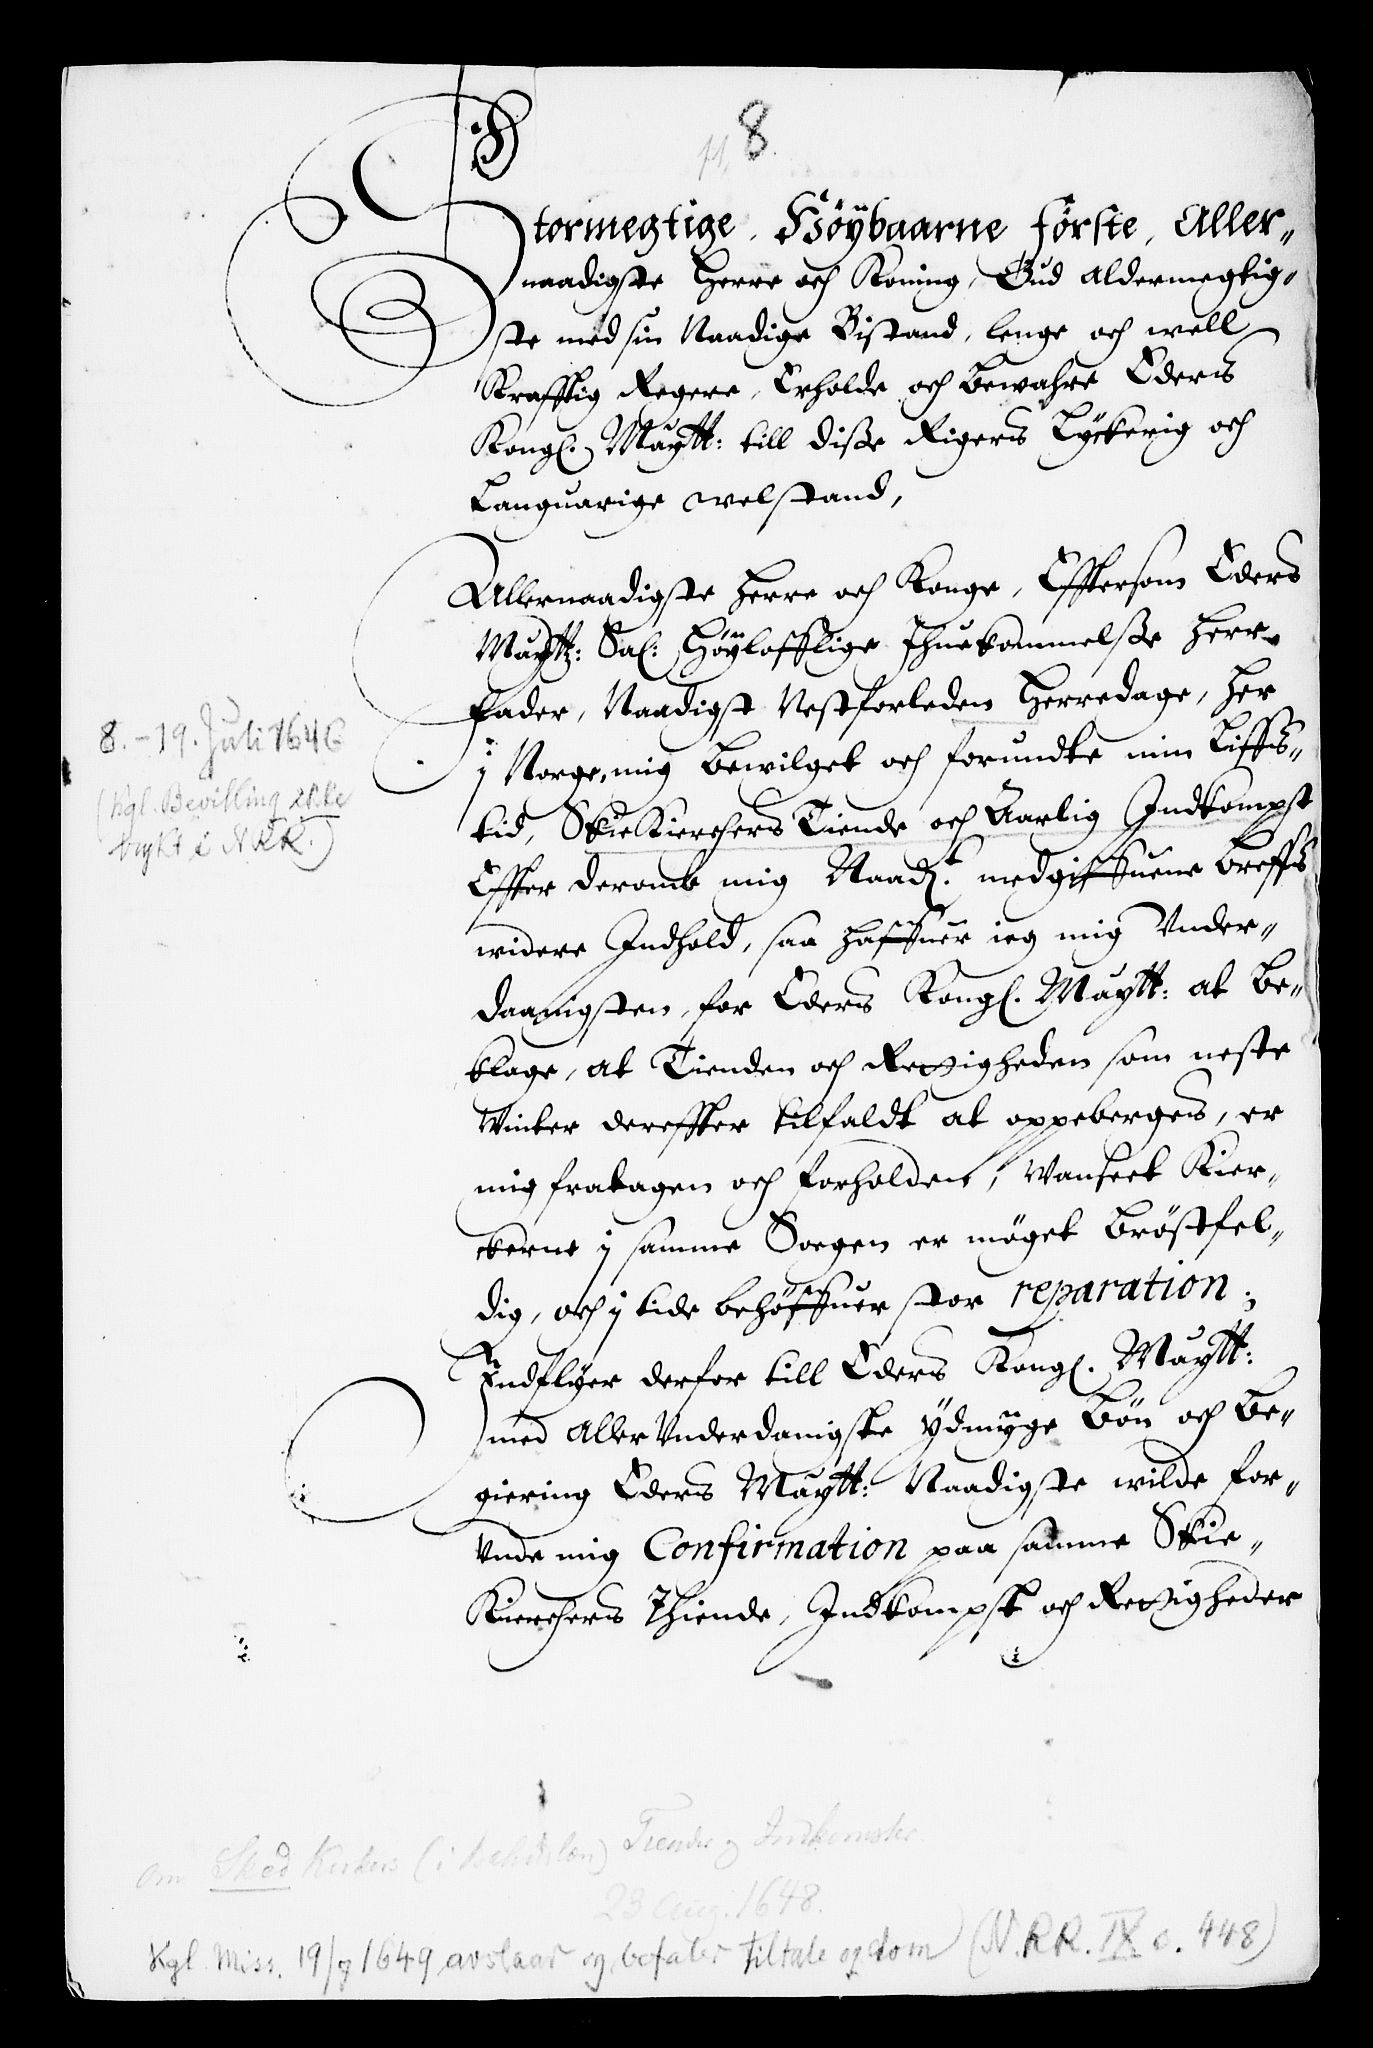 8.
Stormegtige, Höybaarne förste, Aller„
naadigste Herre och Koning, Gud aldermegtig„
ste med sin Naadige Bistand, lenge och well
Krafftig Regere, Erholde och bewahre Eders
Kongl. Maytt: till disse Rigers Lyckerig och
Languarige welstand,
Allernaadigste Herre och Konge, Efftersom Eders
Maytz: Sal: Höylofflige Ihuekommelsse Herr
fader, Naadigst Nestforleden Herredage, her
j Norge, mig bewilget och forundte min Liffs„
tid, Skie Kierchers Tiende och Aarlig Indkompst
Effter deromb mig Naad.t medgiffuene breffs
widere Indhold, saa haffuer ieg mig Vnder„
daanigsten, for Eders Kongl. Maytt: at be„
klage, at Tienden och Rettigheden som neste
Vinter dereffter tilfaldt at oppebergers, er
mig fratagen och forholden, Vanseet Kier„
ckerne j samme Soegen er möget bröstfel„
dig, och j tide behöffuer stor reparation;
Indflyer derfor till Eders Kongl. Maytt:
med aller Vnderdanigste ydmyge bön och be„
giering Eders Maytt: Naadigste wilde for„
Vnde mig Confirmation paa samme Skie„
Kierchers Thiende, Indkompst och Rettigheder
8.-19. Juli 1646
(Kgl. Bevilling ikke
trykt i NRR.)
om Skod Kirkes (i Bahuslen) Tiende og Indkomster.
23 Aug. 1648.
Kgl. Miss. 19/9 1649 avslaar og befaler tiltale og dom (N.RR. IX s. 448)